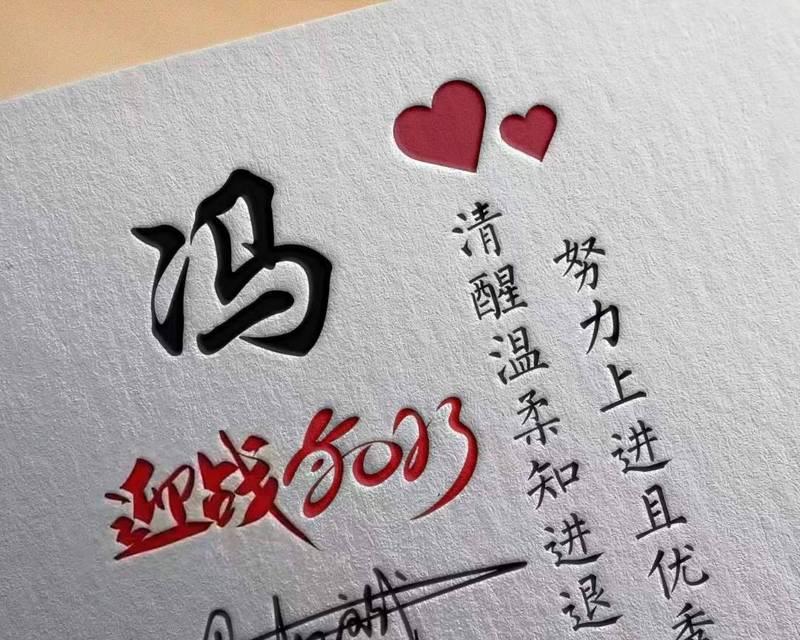 冯
迎战2023
清醒温柔知进退
努力上进且优秀